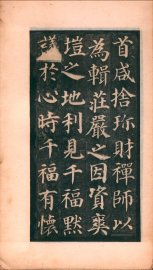 首咸捨珎財禪師以
為輯莊嚴之因資爽
塏之地利見千福默
議於心時千福有懷